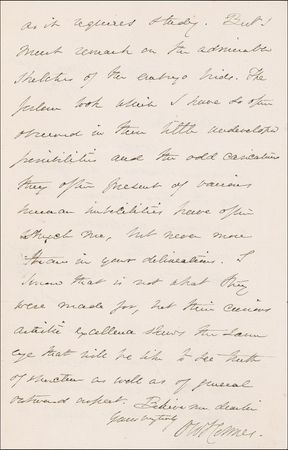 as it requires study. But I
must remark on the admirable
sketches of the embryo birds. The
look which I have so often
observed in these little undeveloped
possibilities and the odd caricature
they often present of various
human imbecilities have often
struck me, but never more
than in your delineations. I
know that is not what they
were made for, but their curious
artistic excellence shows the same
eye that will be like to see truth
of structure as well as of general
outward aspect. Believe me dear Sir
Yours very truly
O W Holmes.